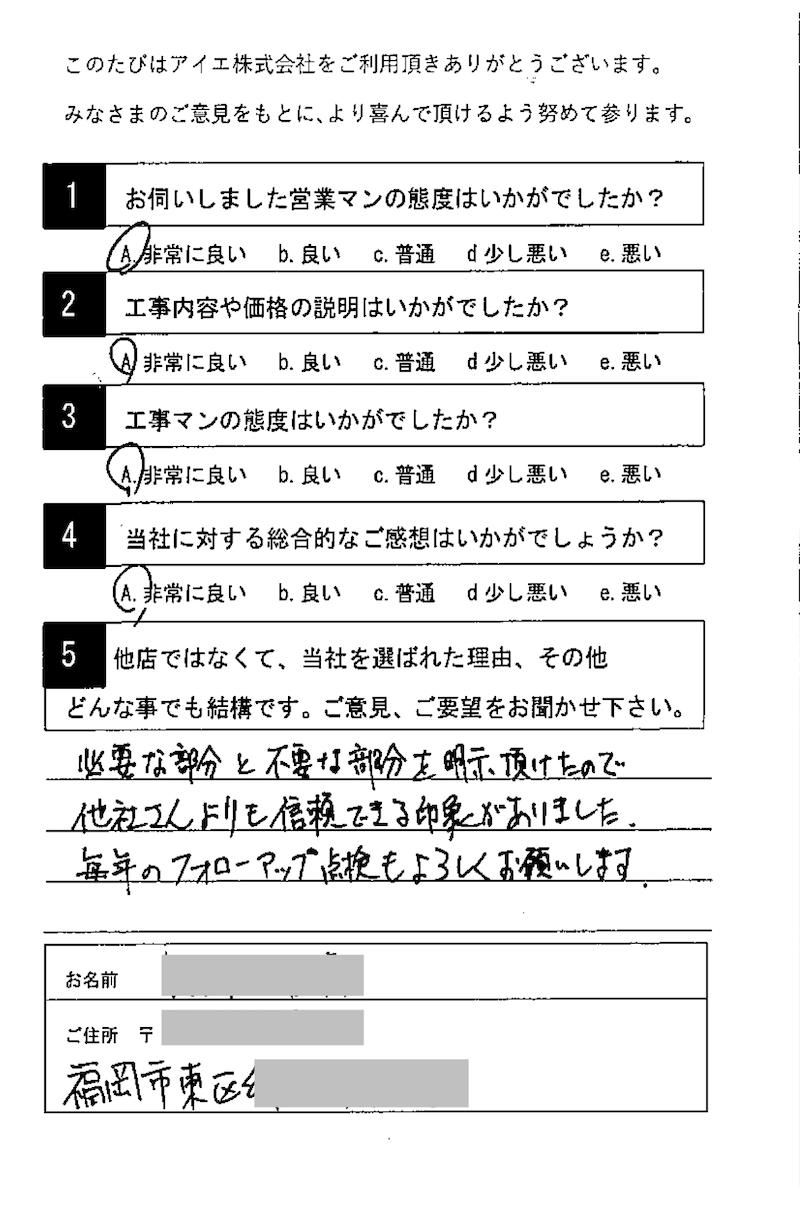 このたびはアイエ株式会社をご利用頂きありがとうございます。
みなさまのご意見をもとに、より喜んで頂けるよう努めて参ります。
1 お伺いしました営業マンの態度はいかがでしたか？
A. 非常に良い b. 良い c. 普通 d 少し悪い e. 悪い
2 工事内容や価格の説明はいかがでしたか？
A 非常に良い b. 良い c. 普通 d 少し悪い e. 悪い
3 工事マンの態度はいかがでしたか？
A. 非常に良い b. 良い c. 普通 d 少し悪い e. 悪い
4 当社に対する総合的なご感想はいかがでしょうか？
A. 非常に良い b. 良い c. 普通 d 少し悪い e. 悪い
5 他店ではなくて、当社を選ばれた理由、その他
どんな事でも結構です。ご意見、ご要望をお聞かせ下さい。
必要な部分と不要な部分を明示頂けたので
他社さんよりも信頼できる印象がありました.
毎年のフォローアップ点検もよろしくお願いします.
お名前
ご住所 〒
福岡市東区